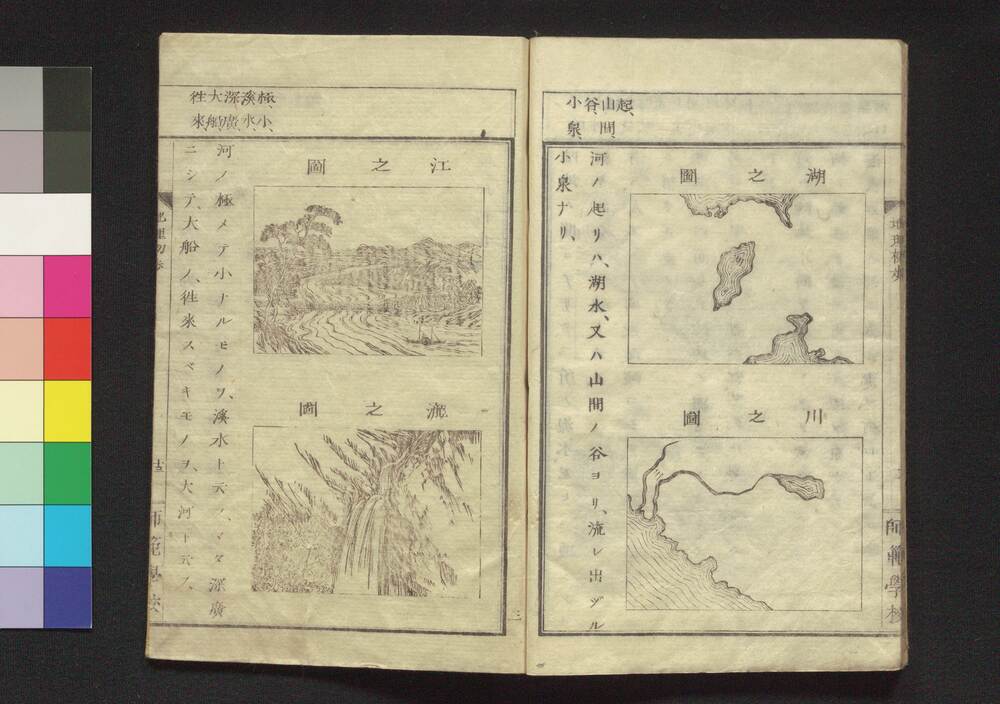 起、
山間、
谷、
小泉、
湖之圖
川之圖
河ノ起リハ、湖水、又ハ山間ノ谷ヨリ、流レ出ヅル
小泉ナリ、
師範學校
極、小、
溪水、
深廣
大船
徃來
江之圖
瀧之圖
河ノ極メテ小ナルモノヲ、溪水ト云フ、マタ深廣
ニシテ、大船ノ、徃來スベキモノヲ、大河ト云フ、